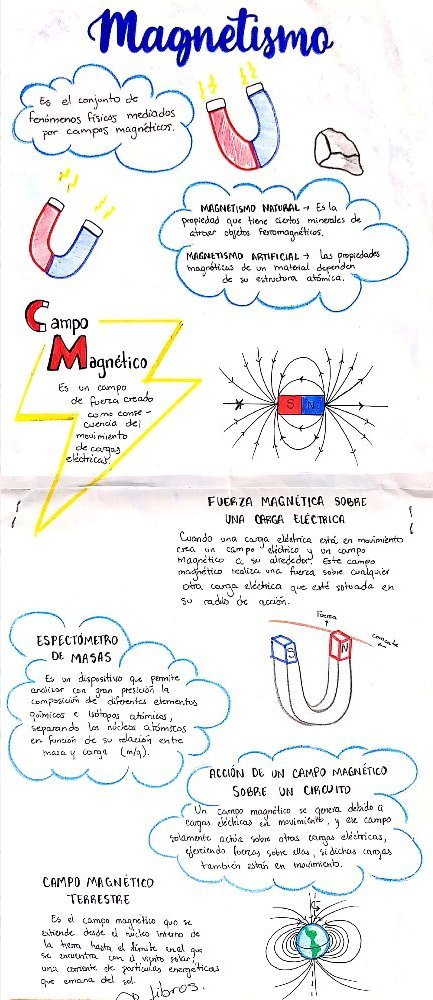 Magnetismo
Es el conjunto de
fenómenos físicos mediados
por campos magnéticos.
MAGNETISMO NATURAL → Es la
propiedad que tiene ciertos minerales de
atraer objetos ferromagnéticos.
MAGNETISMO ARTIFICIAL → las propiedades
magnéticas de un material dependen
de su estructura atómica.
Campo
Magnético
Es un campo
de fuerza creado
como conse-
cuencia del
movimiento
de cargas
eléctricas.
S N
FUERZA MAGNÉTICA SOBRE
UNA CARGA ELÉCTRICA
Cuando una carga eléctrica está en movimiento
crea un campo eléctrico y un campo
magnético a su alrededor. Este campo
magnético realiza una fuerza sobre cualquier
otra carga eléctrica que esté situada en
su radio de acción.
fuerza
corriente
S N
ESPECTÓMETRO
DE MASAS
Es un dispositivo que permite
analizar con gran presición la
composición de diferentes elementos
químicos e isótopos atómicos,
separando los núcleos atómicos
en función de su relación entre
masa y carga (m/q).
ACCIÓN DE UN CAMPO MAGNÉTICO
SOBRE UN CIRCUITO
Un campo magnético se genera debido a
cargas eléctricas en movimiento, y ese campo
solamente actúa sobre otras cargas eléctricas,
ejerciendo fuerzas sobre ellas, si dichas cargas
también están en movimiento.
CAMPO MAGNÉTICO
TERRESTRE
Es el campo magnético que se
extiende desde el núcleo interno de
la tierra hasta el límite en el que
se encuentra con el viento solar,
una corriente de partículas energéticas
que emana del sol.
libros.